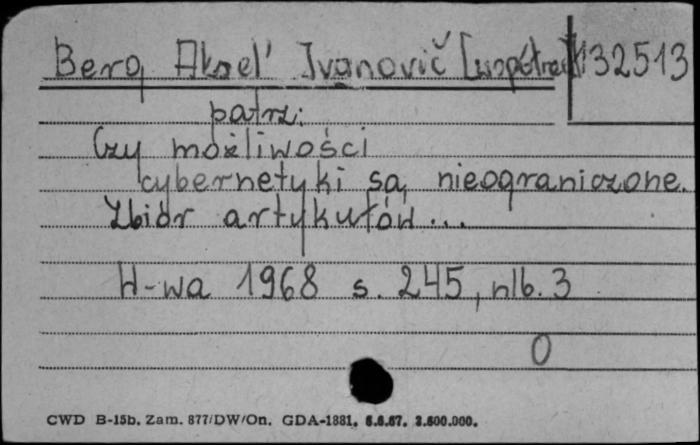 Berg Aksel' Ivanovič [współred.] 132513
patrz:
Czy możliwości
cybernetyki są nieograniczone.
Zbiór artykułów...
W-wa 1968 s. 245, nlb. 3
0
CWD B-15b. Zam. 877/DW/On. GDA-1881. 6.6.67. 2.500.000.